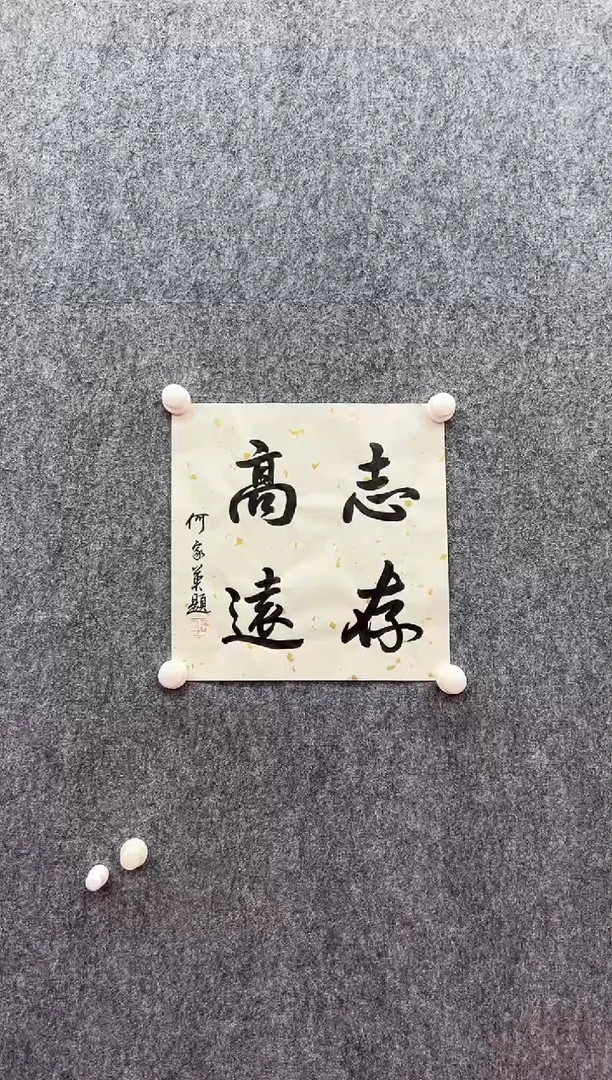 志存
高遠
何家英題